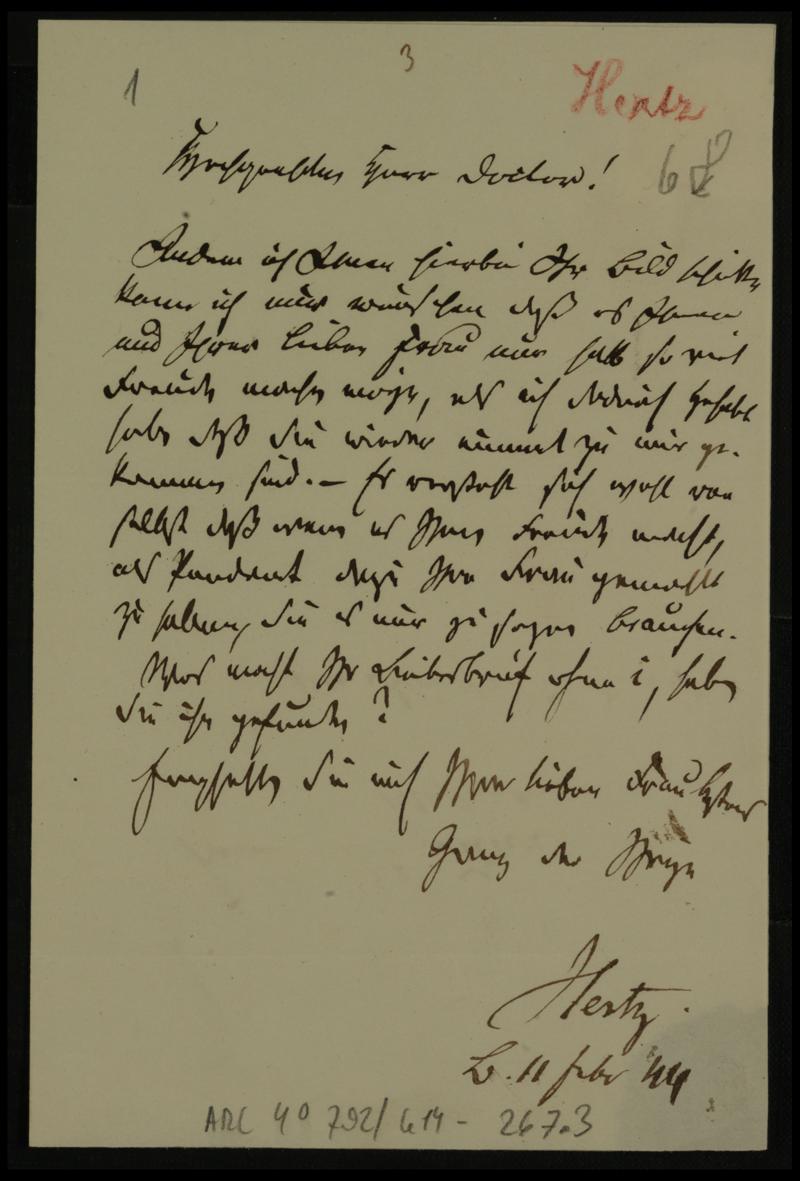 3
1
Hertz
68
Hochgeehrter Herr Doctor!
Indem ich Ihnen hierbei Ihr Bild schicke
kann ich nur wünschen daß es Ihnen
und Ihrer lieben Frau nur halb so viel
Freude machen möge, als ich dadurch gehabt
habe daß Sie wieder einmal zu mir ge-
kommen sind. – Es versteht sich wohl von
selbst daß wenn es Ihnen Freude macht,
als Pendant dazu Ihre Frau gemalt
zu haben, Sie es nur zu sagen brauchen.
Was macht Ihr Liebesbrief ohne i, haben
Sie ihn gefunden?
Empfehlen Sie mich Ihrer lieben Frau
Ganz der Ihrige
Hertz.
B. 11 Febr 44
ARC 4° 792/G14 - 267.3